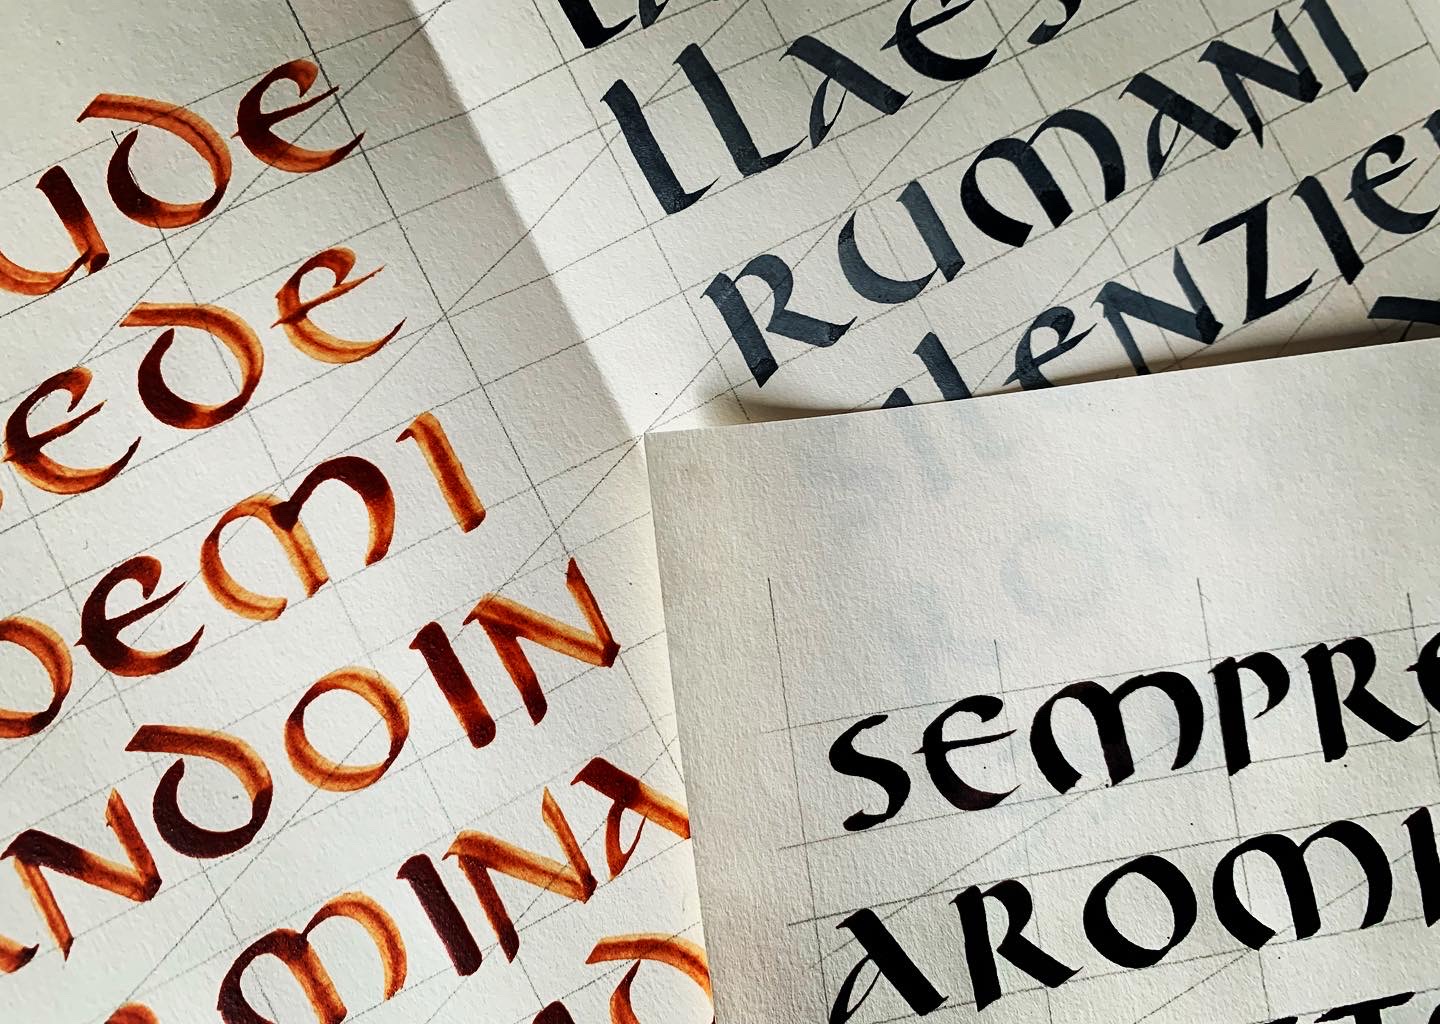 UDE
EDE
DEMI
NDOIN
MINA
LLAES
RUMANI
ILENZIE
SEMPRE
AROMI